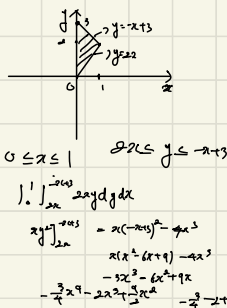 y
3
y=-x+3
2
y=2x
0
1
x
0 ≤ x ≤ 1
2x ≤ y ≤ -x+3
∫₀¹ ∫_{2x}^{-x+3} 2xy dy dx
xy²]_{2x}^{-x+3} = x(-x+3)² - 4x³
x(x² - 6x + 9) - 4x³
-3x³ - 6x² + 9x
- 3/4 x⁴ - 2x³ + 9/2 x²
- 3/4 - 2+